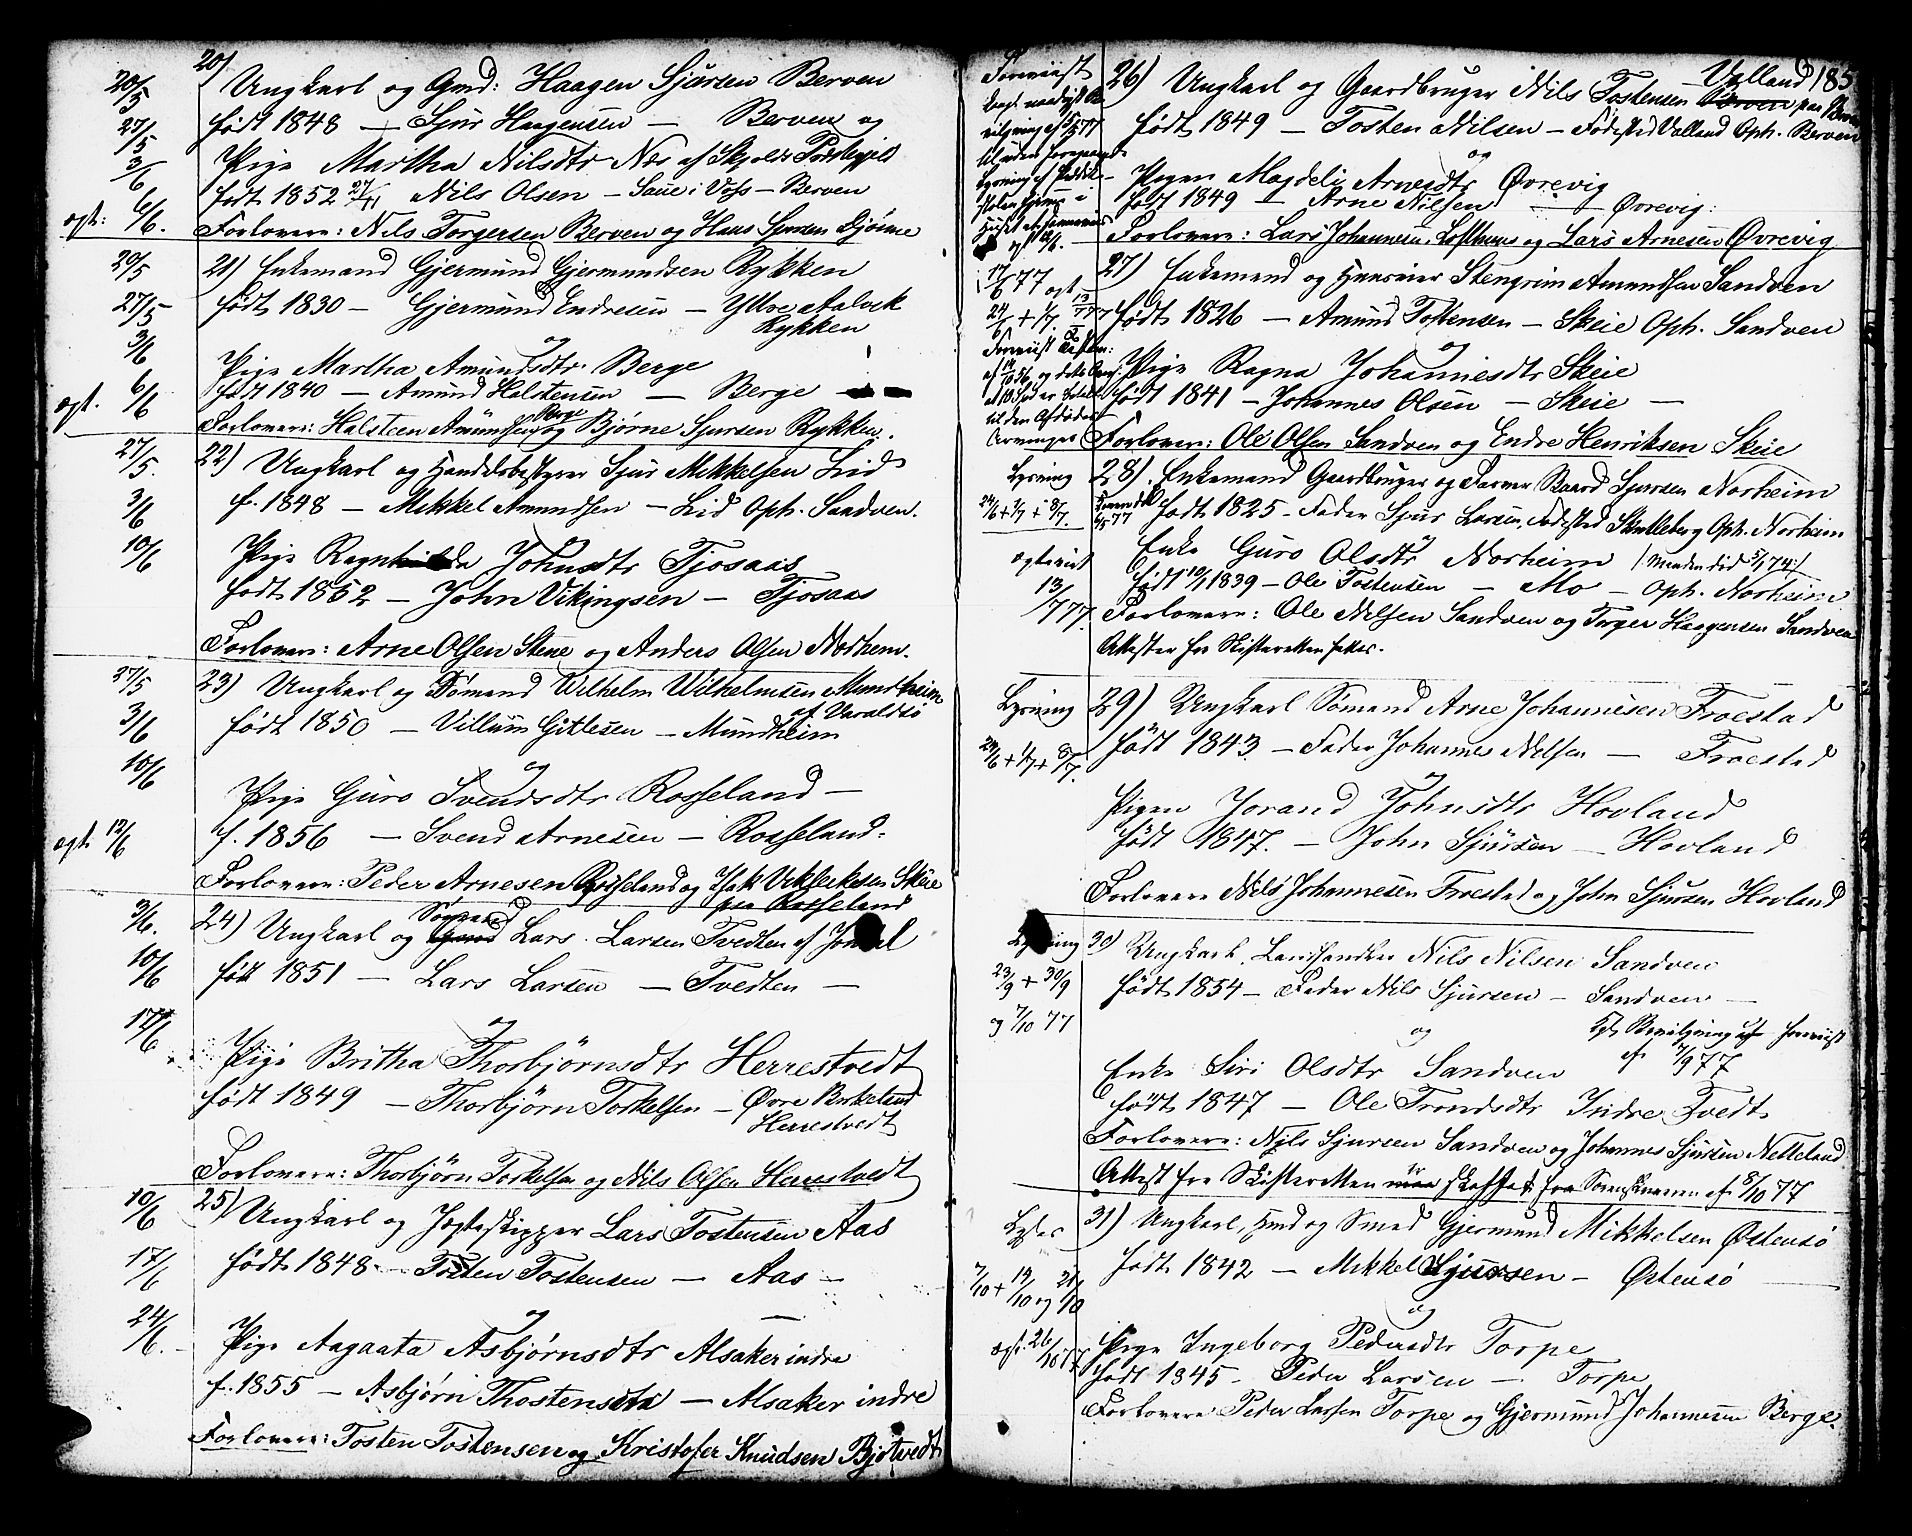 20)
20/5 Ungkarl og Gmd: Haagen Sjursen Berven
27/5 født 1848 — Sjur Haagensen — Berven og
3/6 Pige Martha Nilsdtr Næs af Skjolds Præstegjeld
født 1852 27/11 Nils Olsen — Saue i Voss — Berven
ægt: 6/6. Forlovere: Nils Torgersen Berven og Hans Sjursen Djønne
20/5 21) Enkemand Gjermund Gjermundsen Rykken
27/5 født 1830 — Gjermund Endresen — Ytre Aalvik
Rykken
3/6 og
Pige Martha Amundsdtr. Berge
ægt. 6/6 født 1840 — Amund Halstensen — Berge
Forlovere: Halsteen Amundsen Berge og Bjørne Sjursen Rykken.
27/5. 22) Ungkarl og Handelsbestyrer Sjur Mikkelsen Lid
3/6 f. 1848 — Mikkel Amundsen — Lid Oph. Sandven.
og
10/6 Pige Ragnhilda Johnsdtr Tjosaas
født 1852 — John Vikingsen — Tjosaas
Forlovere: Arne Olsen Stene og Anders Olsen Nordheim.
27/5 23) Ungkarl og Sømand Wilhelm Wilhelmsen Mundheim
af Varaldsø
3/6 født 1850 — Villum Gitlesen — Mundheim
10/6 og
Pige Guro Svendsdtr Rosseland —
ægt. 12/6 f. 1856 — Svend Arnesen — Rosseland.
Forlovere: Peder Arnesen Rosseland og Isak Skeie
paa Rosseland
3/6. 24) Ungkarl og Sømand Lars Larsen Tvedten af
10/6 født 1851 — Lars Larsen — Tvedten —
17/6 og
Pige Britha Thorbjørnsdtr Herrestvedt
født 1849 — Thorbjørn Torkelsen — Øvre Birkeland
Herrestvedt
Forlovere: Thorbjörn Torkelsen og Nils Olsen Herrestvedt
10/6 25) Ungkarl og Jægteskipper Lars Tostensen Aas
17/6 født 1848 — Tosten Tostensen — Aas —
24/6. og
Pige Aagaata Asbjørnsdtr Alsaker indre
f. 1855 — Asbjørn Thostensen — Alsaker indre
Forlovere: Tosten Tostensen og Kristofer Knudsen Bjotvedt
185
Foreviist
26) Ungkarl og Gaardbruger Nils Tostensen Valland
født 1849 — Tosten Nilsen — Fødested Valland Oph. Berven
og
Pigen Magdeli Arnesdtr Øvrevig
født 1849 — Arne Nilsen — Øvrevig.
Forlovere: Lars Johannesen Lofthuus og Lars Arnesen Øvrevig
27) Enkemand og Huusmand Stengrim Amundsen Sandven
24/6 + 1/7. født 1826 — Amund Tostensen — Skeie Oph. Sandven
og
Pige Ragna Johannesdtr Skeie
født 1841 — Johannes Olsen — Skeie —
til den Afdødes
Arvinger
Forlovere: Ole Olsen Sandven og Endre Henriksen Skeie
Lysning 28). Enkemand Gaardbruger og Farver Baard Sjursen Norheim
24/6 + 1/7 + 8/7. født 1825 — Fader Sjur Larsen, Fødested Skutleberg Oph. Norheim
og
Enke Guro Olsdtr Norheim (Manden død 5/1 74)
ægteviet født 10/1 1839 — Ole Tostensen — Mo — Oph. Norheim
13/7 77. Forlovere: Ole Nilsen Sandven og Torger Haagensen Sandven
Attester fra Skifteretten haves.
Lysning 29) Ungkarl Sømand Arne Johannesen Froestad
24/6 + 1/7 + 8/7. født 1843 — Fader Johannes Nilsen — Froestad
og
Pigen Jorand Johnsdtr Hovland
født 1847. — John Sjursen — Hovland
Forlovere Nils Johannesen Froestad og John Sjursen Hovland
Lysning 30) Ungkarl. Landhandler Nils Nilsen Sandven
23/9 + 30/9 født 1854 — Fader Nils Sjursen — Sandven —
og 7/10 77 og
Kgl. Bevilgning foreviist
af 7/9 77
Enke Siri Olsdtr Sandven
født 1847 — Ole Trondsdtr Indre Tvedt
Forlovere: Nils Sjursen Sandven og Johannes Sjursen Netteland
Attest fra Skifteretten er skaffet fra Sorenskriveren af 8/10 77
Lyses 31) Ungkarl, Hmd og Smed Gjermund Mikkelsen Østensø
7/10 + 14/10 og 21/10 født 1842 — Mikkel Sjursen — Østensø
og
ægt. 26/10 77 Pige Ingeborg Pedersdtr Torpe
født 1845 — Peder Larsen — Torpe
Forlovere Peder Larsen Torpe og Gjermund Johannesen Berge.